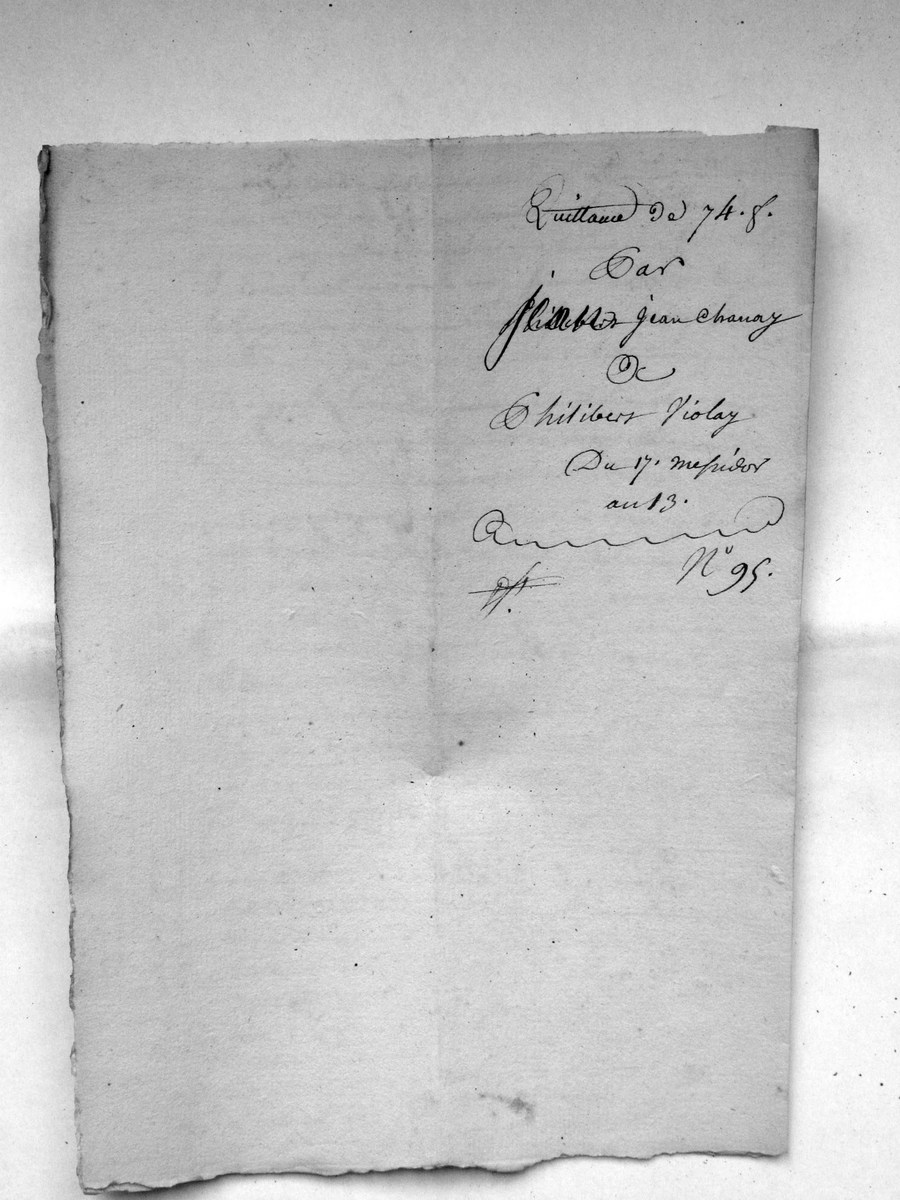 Quittance de 74. f.
Par
Jean Chanay
a
Philibert Violay
Du 17. messidor
an 13.
N° 95.